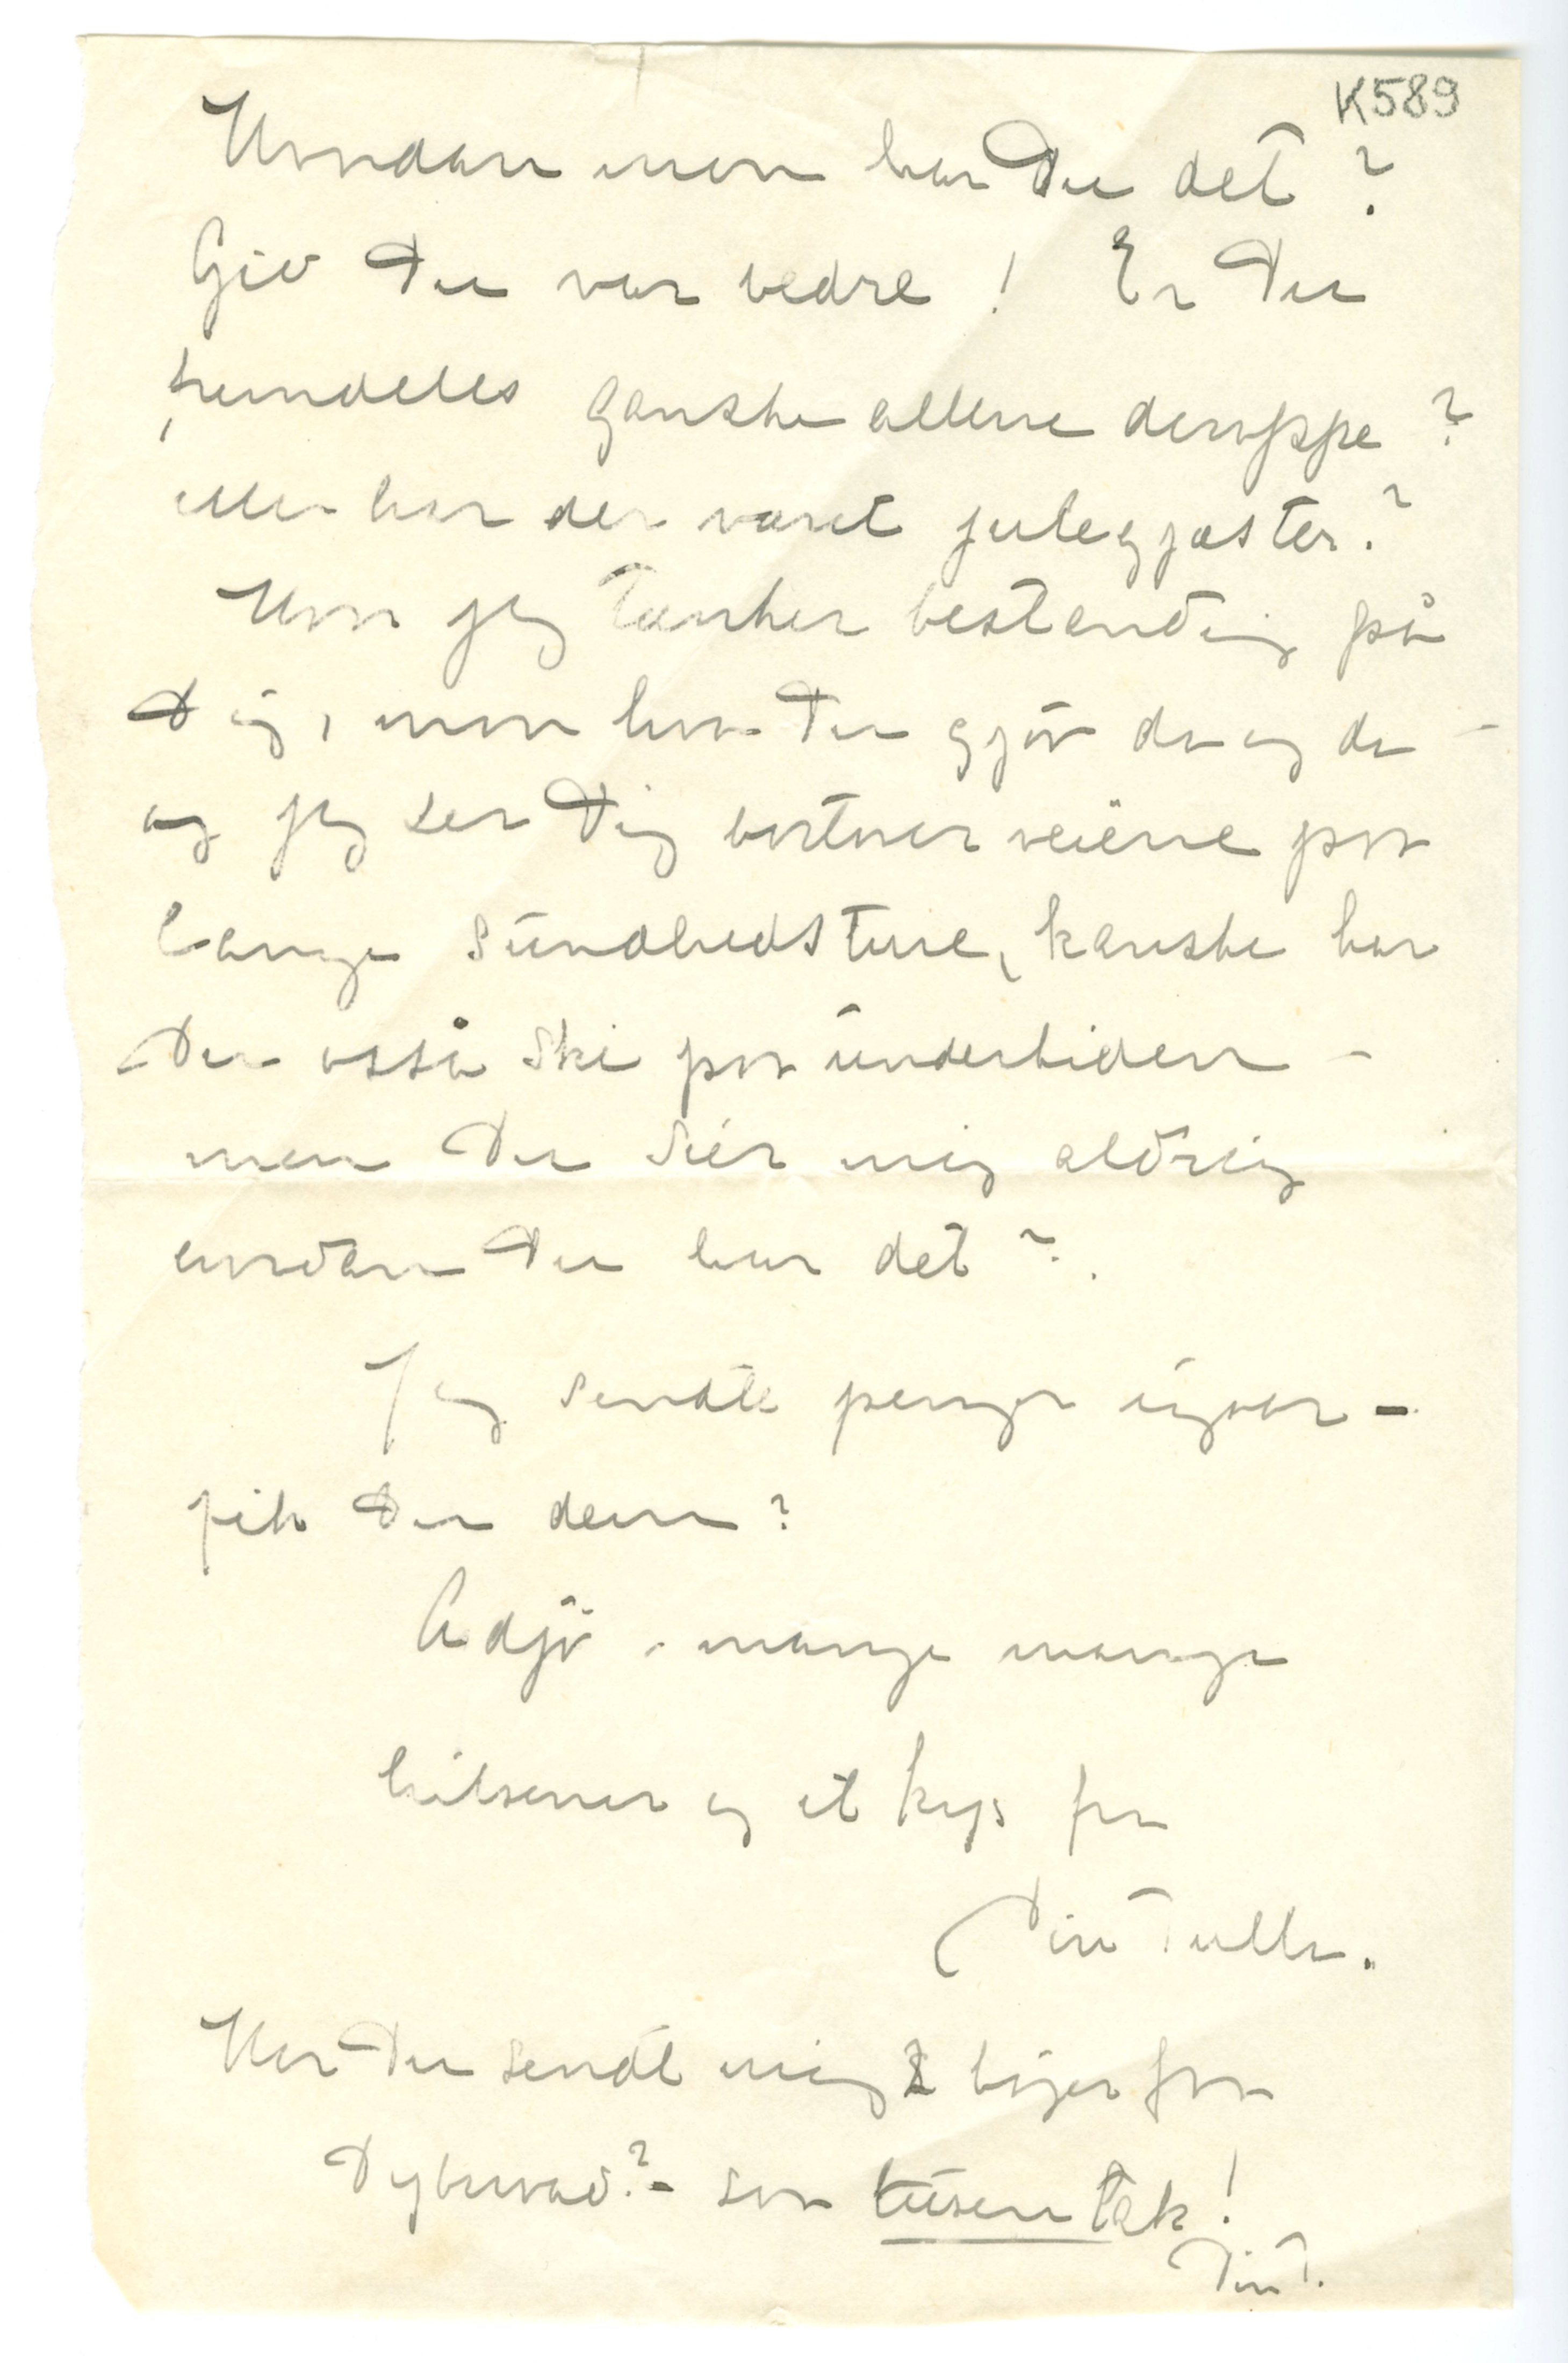 K589
Hvordan mon har Du det?
Giv Du var bedre! Er Du
fremdeles ganske allene deroppe?
eller har der været julegjæster?
Hvor jeg tænker bestændig på
Dig, mon hvad Du gjør da og da –
og jeg ser Dig bortover veiene paa
lange sundhedsture, kanske har
Du osså ski paa undertiden –
men Du siér mig aldrig
hvordan Du har det?
Jeg sendte penger igaar –
fik Du dem?
Adjø – mange mange
hilsener og et kys fra
Din Tulla.
Har Du sendt mig 2 bøger fra
Dybwad? – saa tusen tak!
Din T.